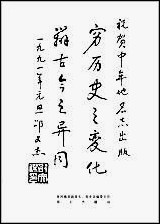 祝贺中牟地名志出版
穷历史之变化
辨古今之异同
一九九一年元旦 邵文杰